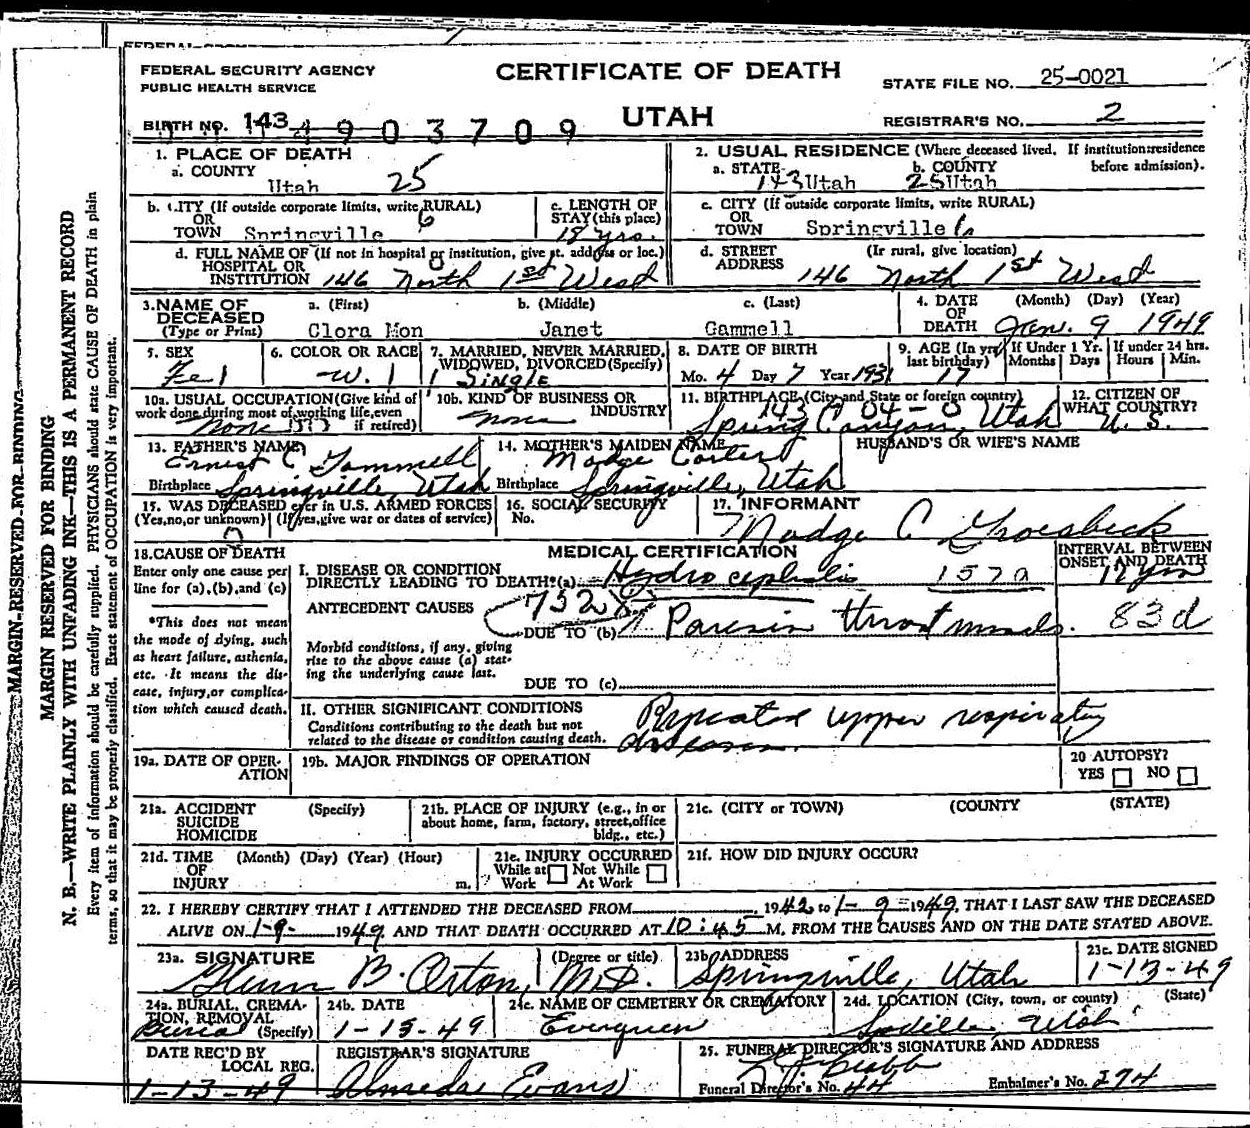 FEDERAL SECURITY AGENCY
PUBLIC HEALTH SERVICE
CERTIFICATE OF DEATH
UTAH
STATE FILE NO. 25-0021
REGISTRAR'S NO. 2
BIRTH NO. 143 4903709
MARGIN RESERVED FOR BINDING
MARGIN RESERVED FOR BINDING
N. B.—WRITE PLAINLY WITH UNFADING INK—THIS IS A PERMANENT RECORD
Every item of information should be carefully supplied. PHYSICIANS should state CAUSE OF DEATH in plain
terms, so that it may be properly classified. Exact statement of OCCUPATION is very important.
1. PLACE OF DEATH
a. COUNTY
Utah 25
2. USUAL RESIDENCE (Where deceased lived. If institution: residence
before admission).
a. STATE b. COUNTY
143 Utah 25 Utah
b. CITY (If outside corporate limits, write RURAL)
OR
TOWN Springville 6
c. LENGTH OF
STAY (this place)
18 yrs.
c. CITY (If outside corporate limits, write RURAL)
OR
TOWN Springville 6
d. FULL NAME OF (If not in hospital or institution, give st. address or loc.)
HOSPITAL OR
INSTITUTION 146 North 1st West
d. STREET (If rural, give location)
ADDRESS 146 North 1st West
3. NAME OF
DECEASED
(Type or Print)
a. (First) b. (Middle) c. (Last)
Clora Mon Janet Gammell
4. DATE (Month) (Day) (Year)
OF
DEATH Jan. 9 1949
5. SEX
Fe 1
6. COLOR OR RACE
W. 1
7. MARRIED, NEVER MARRIED,
WIDOWED, DIVORCED (Specify)
1 Single
8. DATE OF BIRTH
Mo. 4 Day 7 Year 1931
9. AGE (In yrs
last birthday)
17
If Under 1 Yr.
Months Days
If under 24 hrs.
Hours Min.
10a. USUAL OCCUPATION (Give kind of
work done during most of working life, even
if retired)
None
10b. KIND OF BUSINESS OR
INDUSTRY
None
11. BIRTHPLACE (City and State or foreign country)
143 04-0
Spring Canyon, Utah
12. CITIZEN OF
WHAT COUNTRY?
U. S.
13. FATHER'S NAME
Ernest C. Gammell
Birthplace Springville, Utah
14. MOTHER'S MAIDEN NAME
Madge Carter
Birthplace Springville, Utah
HUSBAND'S OR WIFE'S NAME
15. WAS DECEASED ever in U.S. ARMED FORCES
(Yes, no, or unknown) (If yes, give war or dates of service)
16. SOCIAL SECURITY
No.
17. INFORMANT
Madge C Groesbeck
18. CAUSE OF DEATH
Enter only one cause per
line for (a), (b), and (c)
*This does not mean
the mode of dying, such
as heart failure, asthenia,
etc. It means the dis-
ease, injury, or complica-
tion which caused death.
MEDICAL CERTIFICATION
INTERVAL BETWEEN
ONSET AND DEATH
I. DISEASE OR CONDITION
DIRECTLY LEADING TO DEATH*(a) Hydrocephalis 157a 17 yrs
ANTECEDENT CAUSES 752X
DUE TO (b) 83d
Morbid conditions, if any, giving
rise to the above cause (a) stat-
ing the underlying cause last.
DUE TO (c)
II. OTHER SIGNIFICANT CONDITIONS
Conditions contributing to the death but not
related to the disease or condition causing death.
Repeated upper respiratory
diseases.
19a. DATE OF OPER-
ATION
19b. MAJOR FINDINGS OF OPERATION
20 AUTOPSY?
YES NO
21a. ACCIDENT (Specify)
SUICIDE
HOMICIDE
21b. PLACE OF INJURY (e.g., in or
about home, farm, factory, street, office
bldg., etc.)
21c. (CITY or TOWN) (COUNTY (STATE)
21d. TIME (Month) (Day) (Year) (Hour)
OF
INJURY m.
21e. INJURY OCCURRED
While at Not While
Work At Work
21f. HOW DID INJURY OCCUR?
22. I HEREBY CERTIFY THAT I ATTENDED THE DECEASED FROM , 1942 to 1-9-1949, THAT I LAST SAW THE DECEASED
ALIVE ON 1-9- 1949 AND THAT DEATH OCCURRED AT 10:45 M, FROM THE CAUSES AND ON THE DATE STATED ABOVE.
23a. SIGNATURE (Degree or title)
Glenn B. Orton, M.D.
23b. ADDRESS
Springville, Utah
23c. DATE SIGNED
1-13-49
24a. BURIAL, CREMA-
TION, REMOVAL
Burial (Specify)
24b. DATE
1-13-49
24c. NAME OF CEMETERY OR CREMATORY
Evergreen
24d. LOCATION (City, town, or county) (State)
Utah
DATE REC'D BY
LOCAL REG.
1-13-49
REGISTRAR'S SIGNATURE
Almeda Evans
25. FUNERAL DIRECTOR'S SIGNATURE AND ADDRESS
Funeral Director's No. 44 Embalmer's No. 274